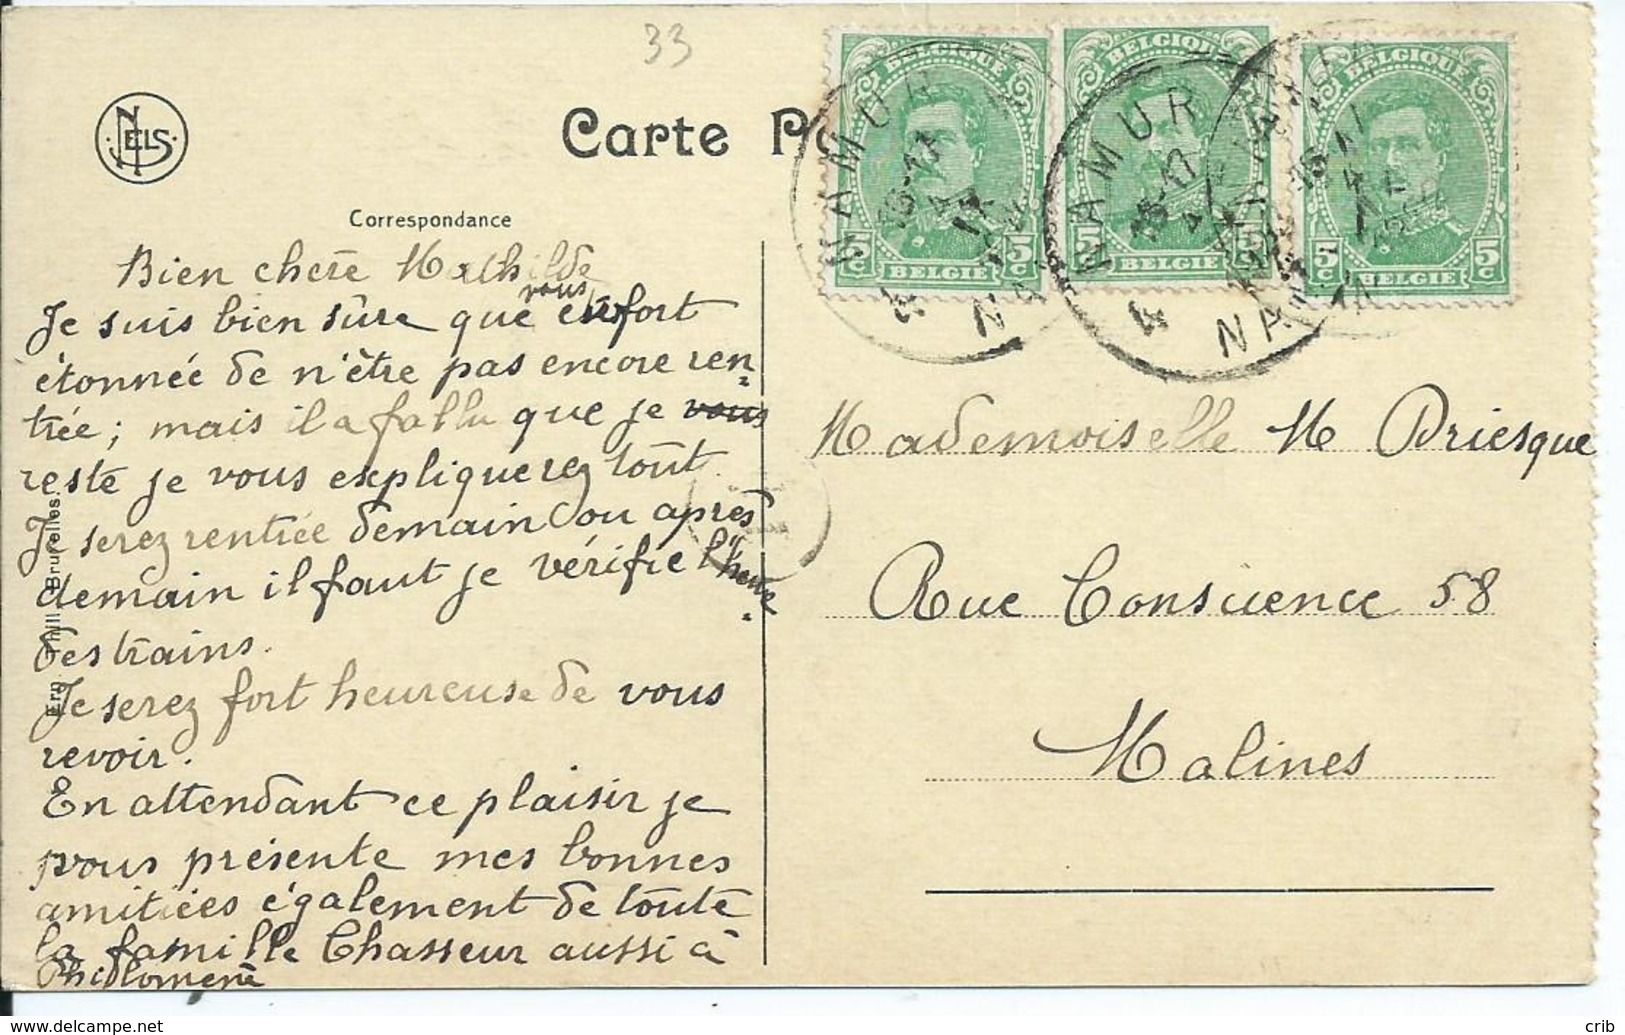 33
NELS
Carte Po
Correspondance
Bien chère Mathilde
Je suis bien sûre que vous fort
étonnée de n'être pas encore ren=
trée; mais il a fallu que je vous
reste je vous expliquerez tout.
Je serez rentrée demain ou après
demain il faut je vérifie l'heure
des trains.
Je serez fort heureuse de vous
revoir.
En attendant ce plaisir je
vous présente mes bonnes
amitiées également de toute
la famille Chasseur aussi à
Philomène
Ern. Thill, Bruxelles.
BELGIQUE
5c BELGIE 5c
BELGIQUE
5c BELGIE 5c
BELGIQUE
5c BELGIE 5c
NAMUR
NAMUR
Mademoiselle M Driesque
Rue Consience 58
Malines
crib